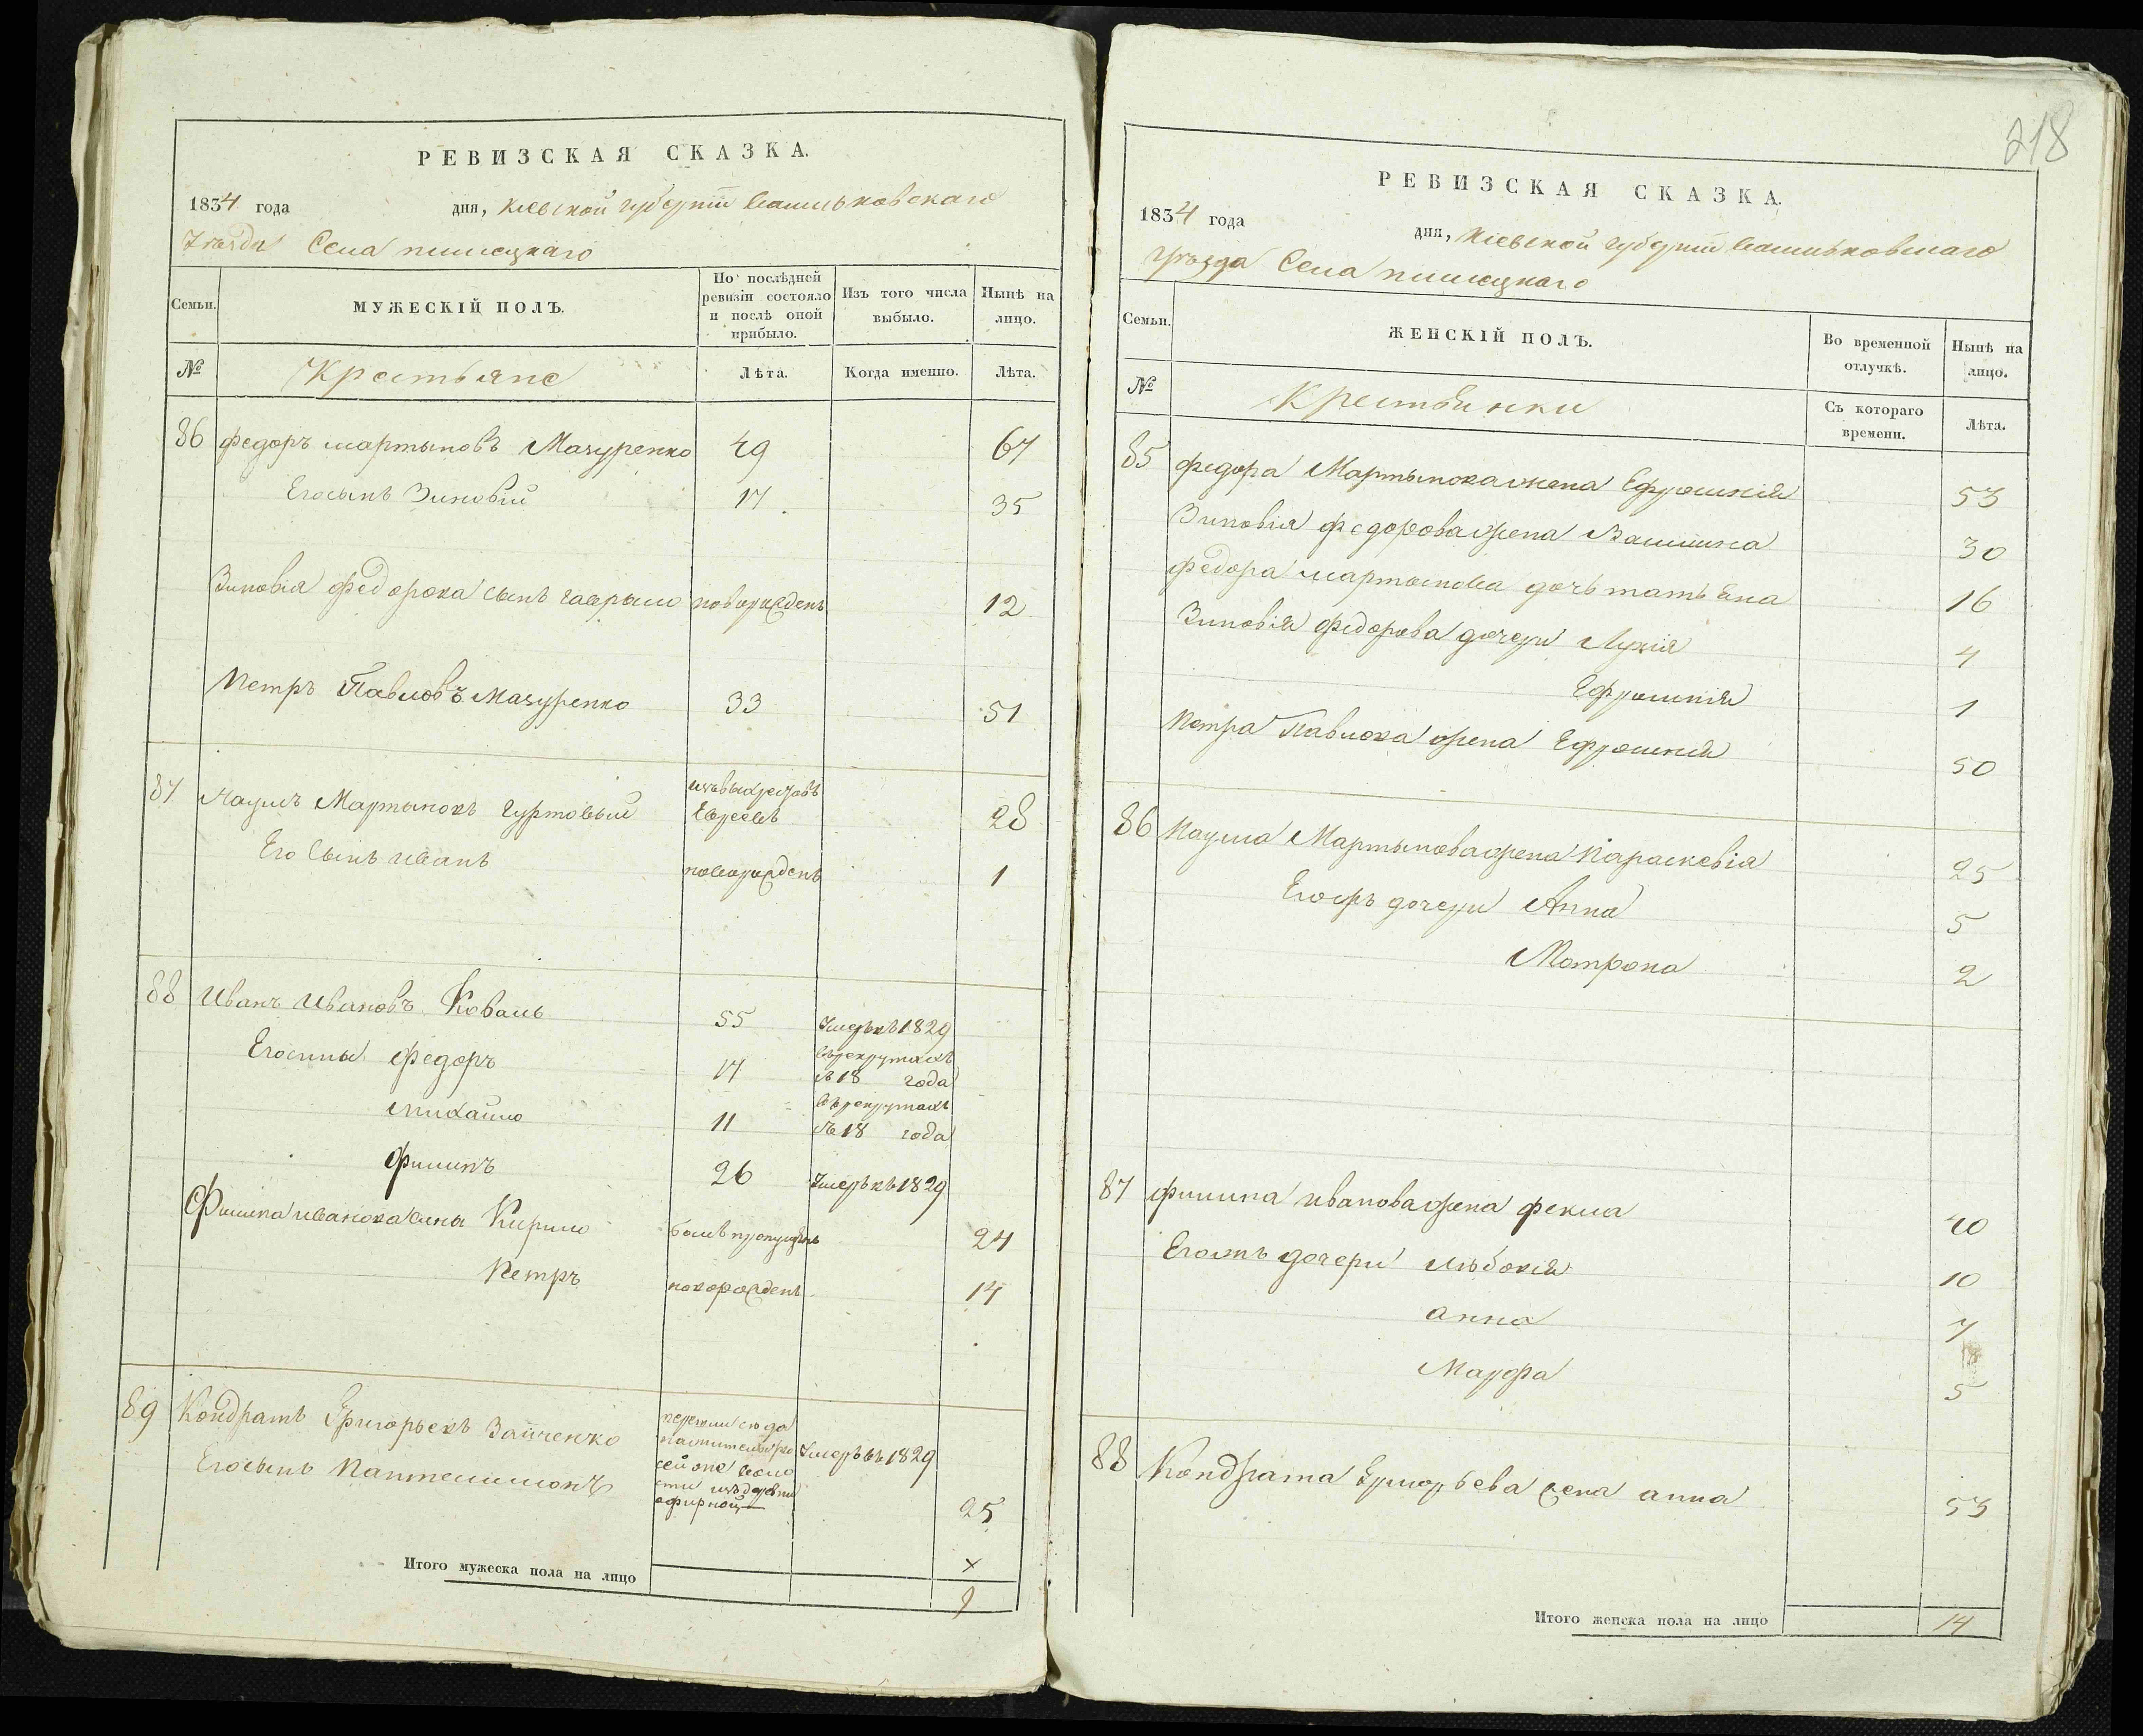 РЕВИЗСКАЯ СКАЗКА.
1834 года дня, Кіевской губерніи Васильковскаго
Уѣзда Села
Семьи. МУЖЕСКІЙ ПОЛЪ. По послѣдней ревизіи состояло и послѣ оной прибыло. Изъ того числа выбыло. Нынѣ на лицо.
№ Крестьяне Лѣта. Когда именно. Лѣта.
86 Федоръ Мартыновъ Мазуренко 49 67
Его сынъ Зиновій 17 35
Зиновія Федорова сынъ Гаврыло новорожденъ 12
Петръ Павловъ Мазуренко 33 51
87 Наумъ Мартыновъ Гуртовый изъ выкрестовъ Евреевъ 28
Его сынъ Иванъ новорожденъ 1
88 Иванъ Ивановъ Коваль 55 Умеръ въ 1829
Его сыны Федоръ 17 въ рекрутахъ съ 18 года
Михайло 11 въ рекрутахъ съ 18 года
Филипъ 26 Умеръ въ 1829
Филипа Иванова сыны Кирило былъ пропущенъ 24
Петръ новорожденъ 14
89 Кондратъ Григорьевъ Зайченко Умеръ въ 1829
Его сынъ Пантелимонъ 25
Итого мужеска пола на лицо 9
218
РЕВИЗСКАЯ СКАЗКА.
1834 года дня, Кіевской губерніи Васильковскаго
Уѣзда Села
Семьи. ЖЕНСКІЙ ПОЛЪ. Во временной отлучкѣ. Нынѣ на лицо.
№ Крестьянки Съ котораго времени. Лѣта.
85 Федора Мартынова жена Ефросинія 53
Зиновія Федорова жена Василина 30
Федора Мартынова дочь Татьяна 16
Зиновія Федорова дочери Лукія 4
Ефросинія 1
Петра Павлова жена Ефросинія 50
86 Наума Мартынова жена Параскевія 25
Его съ ней дочери Анна 5
Матрона 2
87 Филипа Иванова жена Фекла 40
дочери 10
Анна 7
Марфа 5
88 Кондрата Григорьева жена Анна 53
Итого женска пола на лицо 14